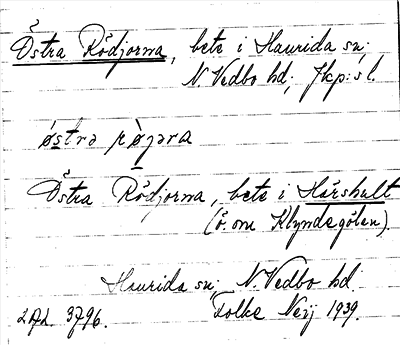 Östra Rödjorna, bete i Haurida sn;
N. Vedbo hd; Jkp:s l.
östrə ròjəra
Östra Rödjorna, bete i Hårshult
(ö. om Klyndegölen).
Haurida sn, N. Vedbo hd.
Folke Neij 1939.
3796.